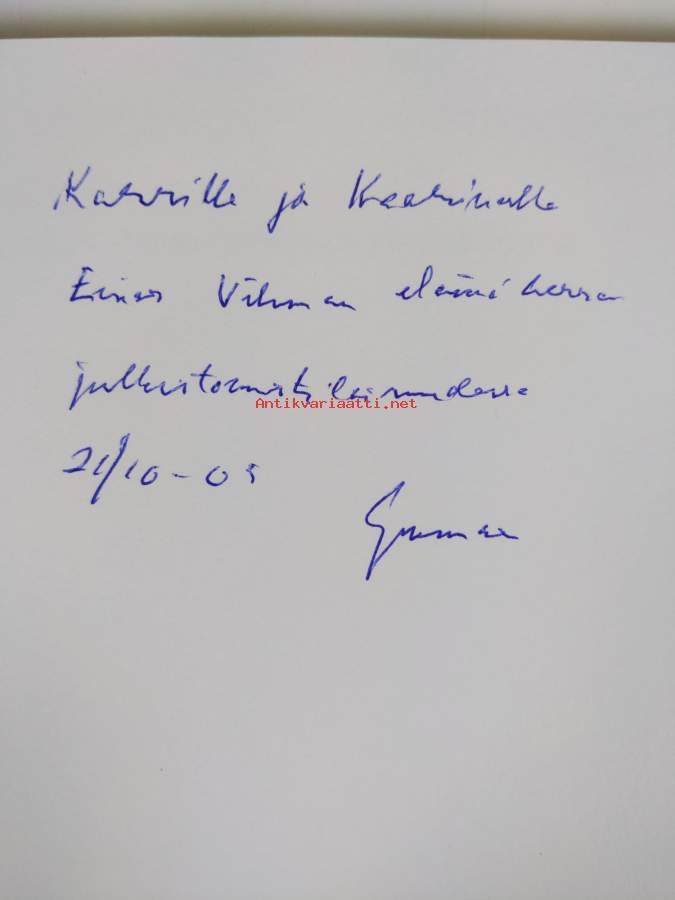 Kaarinalle
ja
Einar Vihman elämäkerran
julkistamistilaisuudessa
Antikvariaatti.net
21/10-05
Gunnar